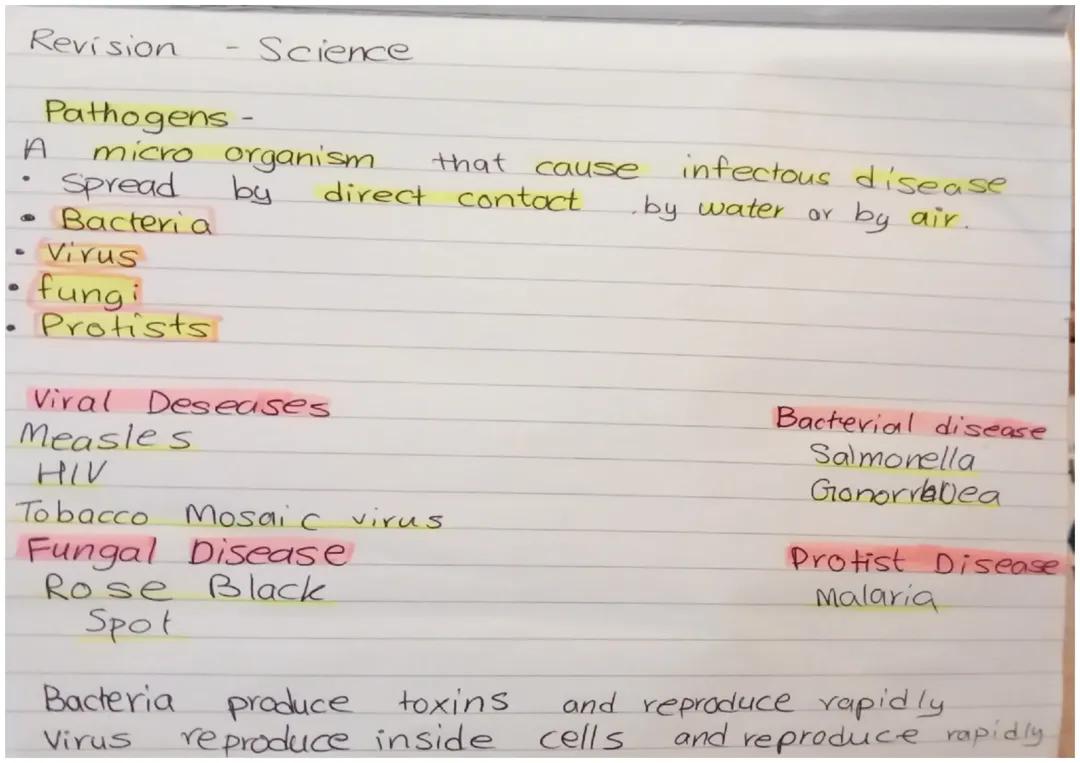 Revision - Science
Pathogens -
A micro organism that cause infectous disease
• Spread by direct contact .by water or by air.
• Bacteria
• Virus
• fungi
• Protists
Viral Deseases
Measles
HIV
Tobacco Mosaic virus
Fungal Disease
Rose Black
Spot
Bacterial disease
Salmonella
Protist Disease
Malaria
Bacteria produce toxins and reproduce rapidly
Virus reproduce inside cells and reproduce rapidly